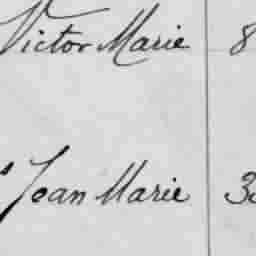 Victor Marie 8
Jean Marie